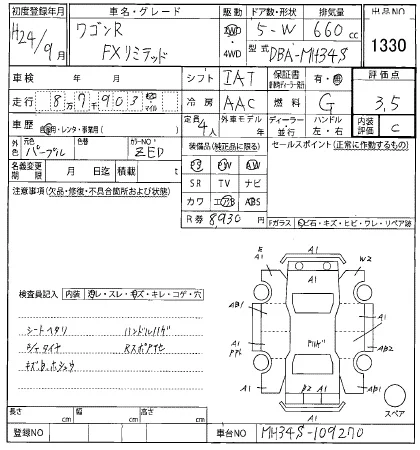 初度登録年月 車名・グレード 駆動 ドア数・形状 排気量 出品NO
H24/9月 ワゴンR FXリミテッド 2WD・4WD 5-W 660cc 1330
型式 DBA-MH34S
車検 年 月 シフト IAT 保証書 有・無 評価点
走行 8万7千903 km・マイル 冷房 AAC 燃料 G 3,5
車歴 自家用・レンタ・事業用( ) 定員 4人 外車モデル 年 ディーラー・並行 ハンドル 左・右 内装評価 C
外色 元色 パープル 色替 カラーNO ZED 装備品(純正品に限る) セールスポイント(正常に作動するもの)
名義変更期限 月 日迄 積載 t PS PW AW
注意事項(欠品・修復・不具合箇所および状態) SR TV ナビ
カワ エアB ABS
R券 8,930円 Fガラス 飛石・キズ・ヒビ・ワレ・リペア跡
検査員記入 内装 ヨレ・スレ・キズ・キレ・コゲ・穴
シートヘタリ ハンドルハゲ
キズ、B、ホシュウ
E A1 A1 W2 A1
A1
AB1 A1
A1 AB2
A1 B2 A1 AB1
A1
スペア
長さ cm 幅 cm 高さ cm
登録NO 車台NO MH34S-109270